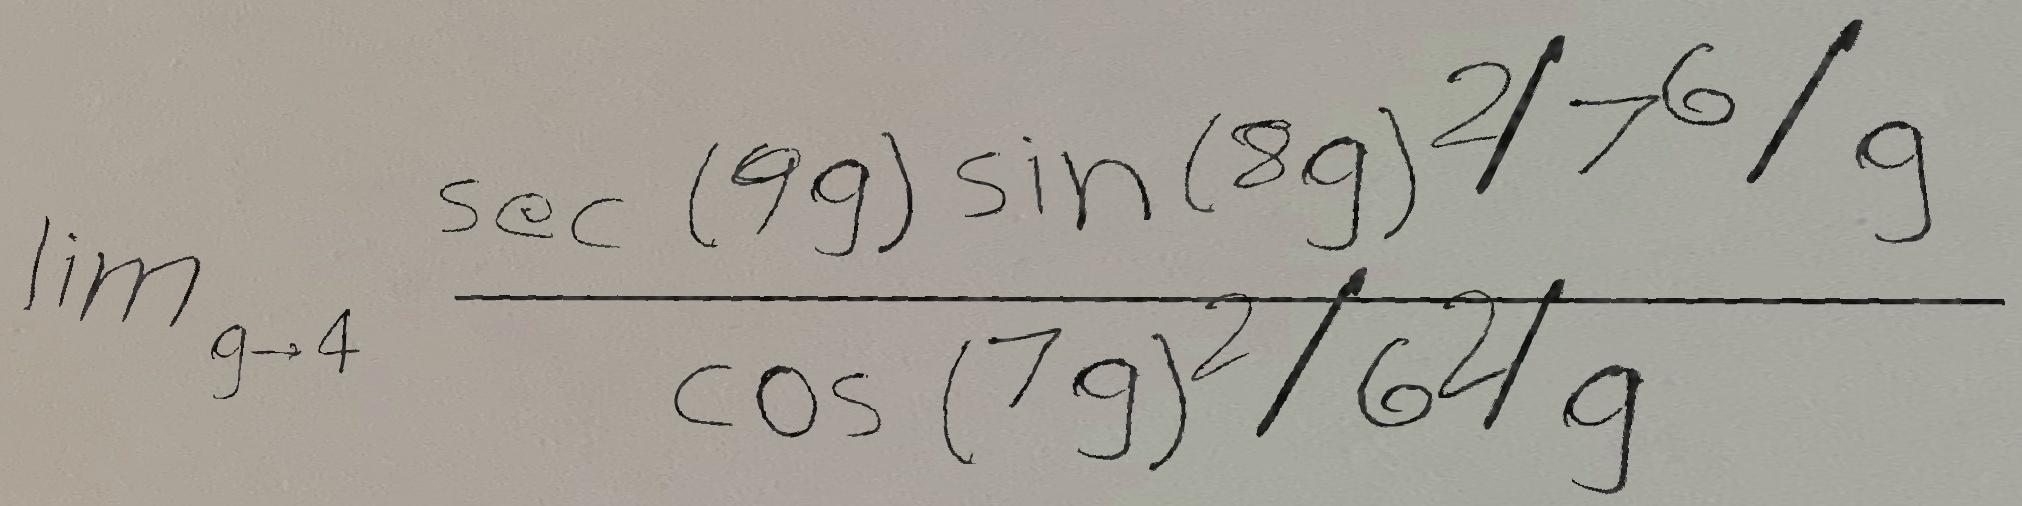 \lim_{g \to 4} \frac{\sec(9g)\sin(8g)^2/7^6/g}{\cos(7g)^2/6^2/g}